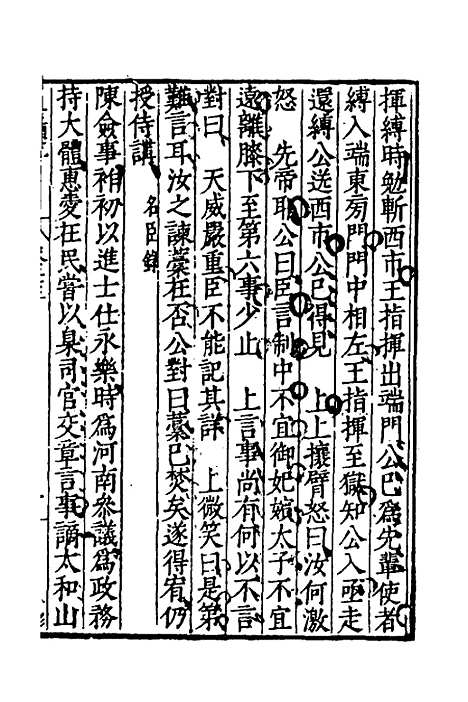 揮縛時勉斬西市王指揮出端門公已為先輩使者
縛入端東旁門門中相左王指揮至獄知公入亟走
還縛公送西市公已得見　上上攘臂怒曰汝何激
怒　先帝耶公曰臣言制中不宜御妃嬪太子不宜
遠離膝下至第六事少止　上言事尚有何以不言
對曰　天威嚴重臣不能記其詳　上微笑曰是第
難言耳汝之諫藁在否公對曰藁已焚矣遂得宥仍
授侍講　名臣錄
陳僉事祚初以進士仕永樂時為河南參議為政務
持大體惠愛在民嘗以臬司官交章言事謫太和山